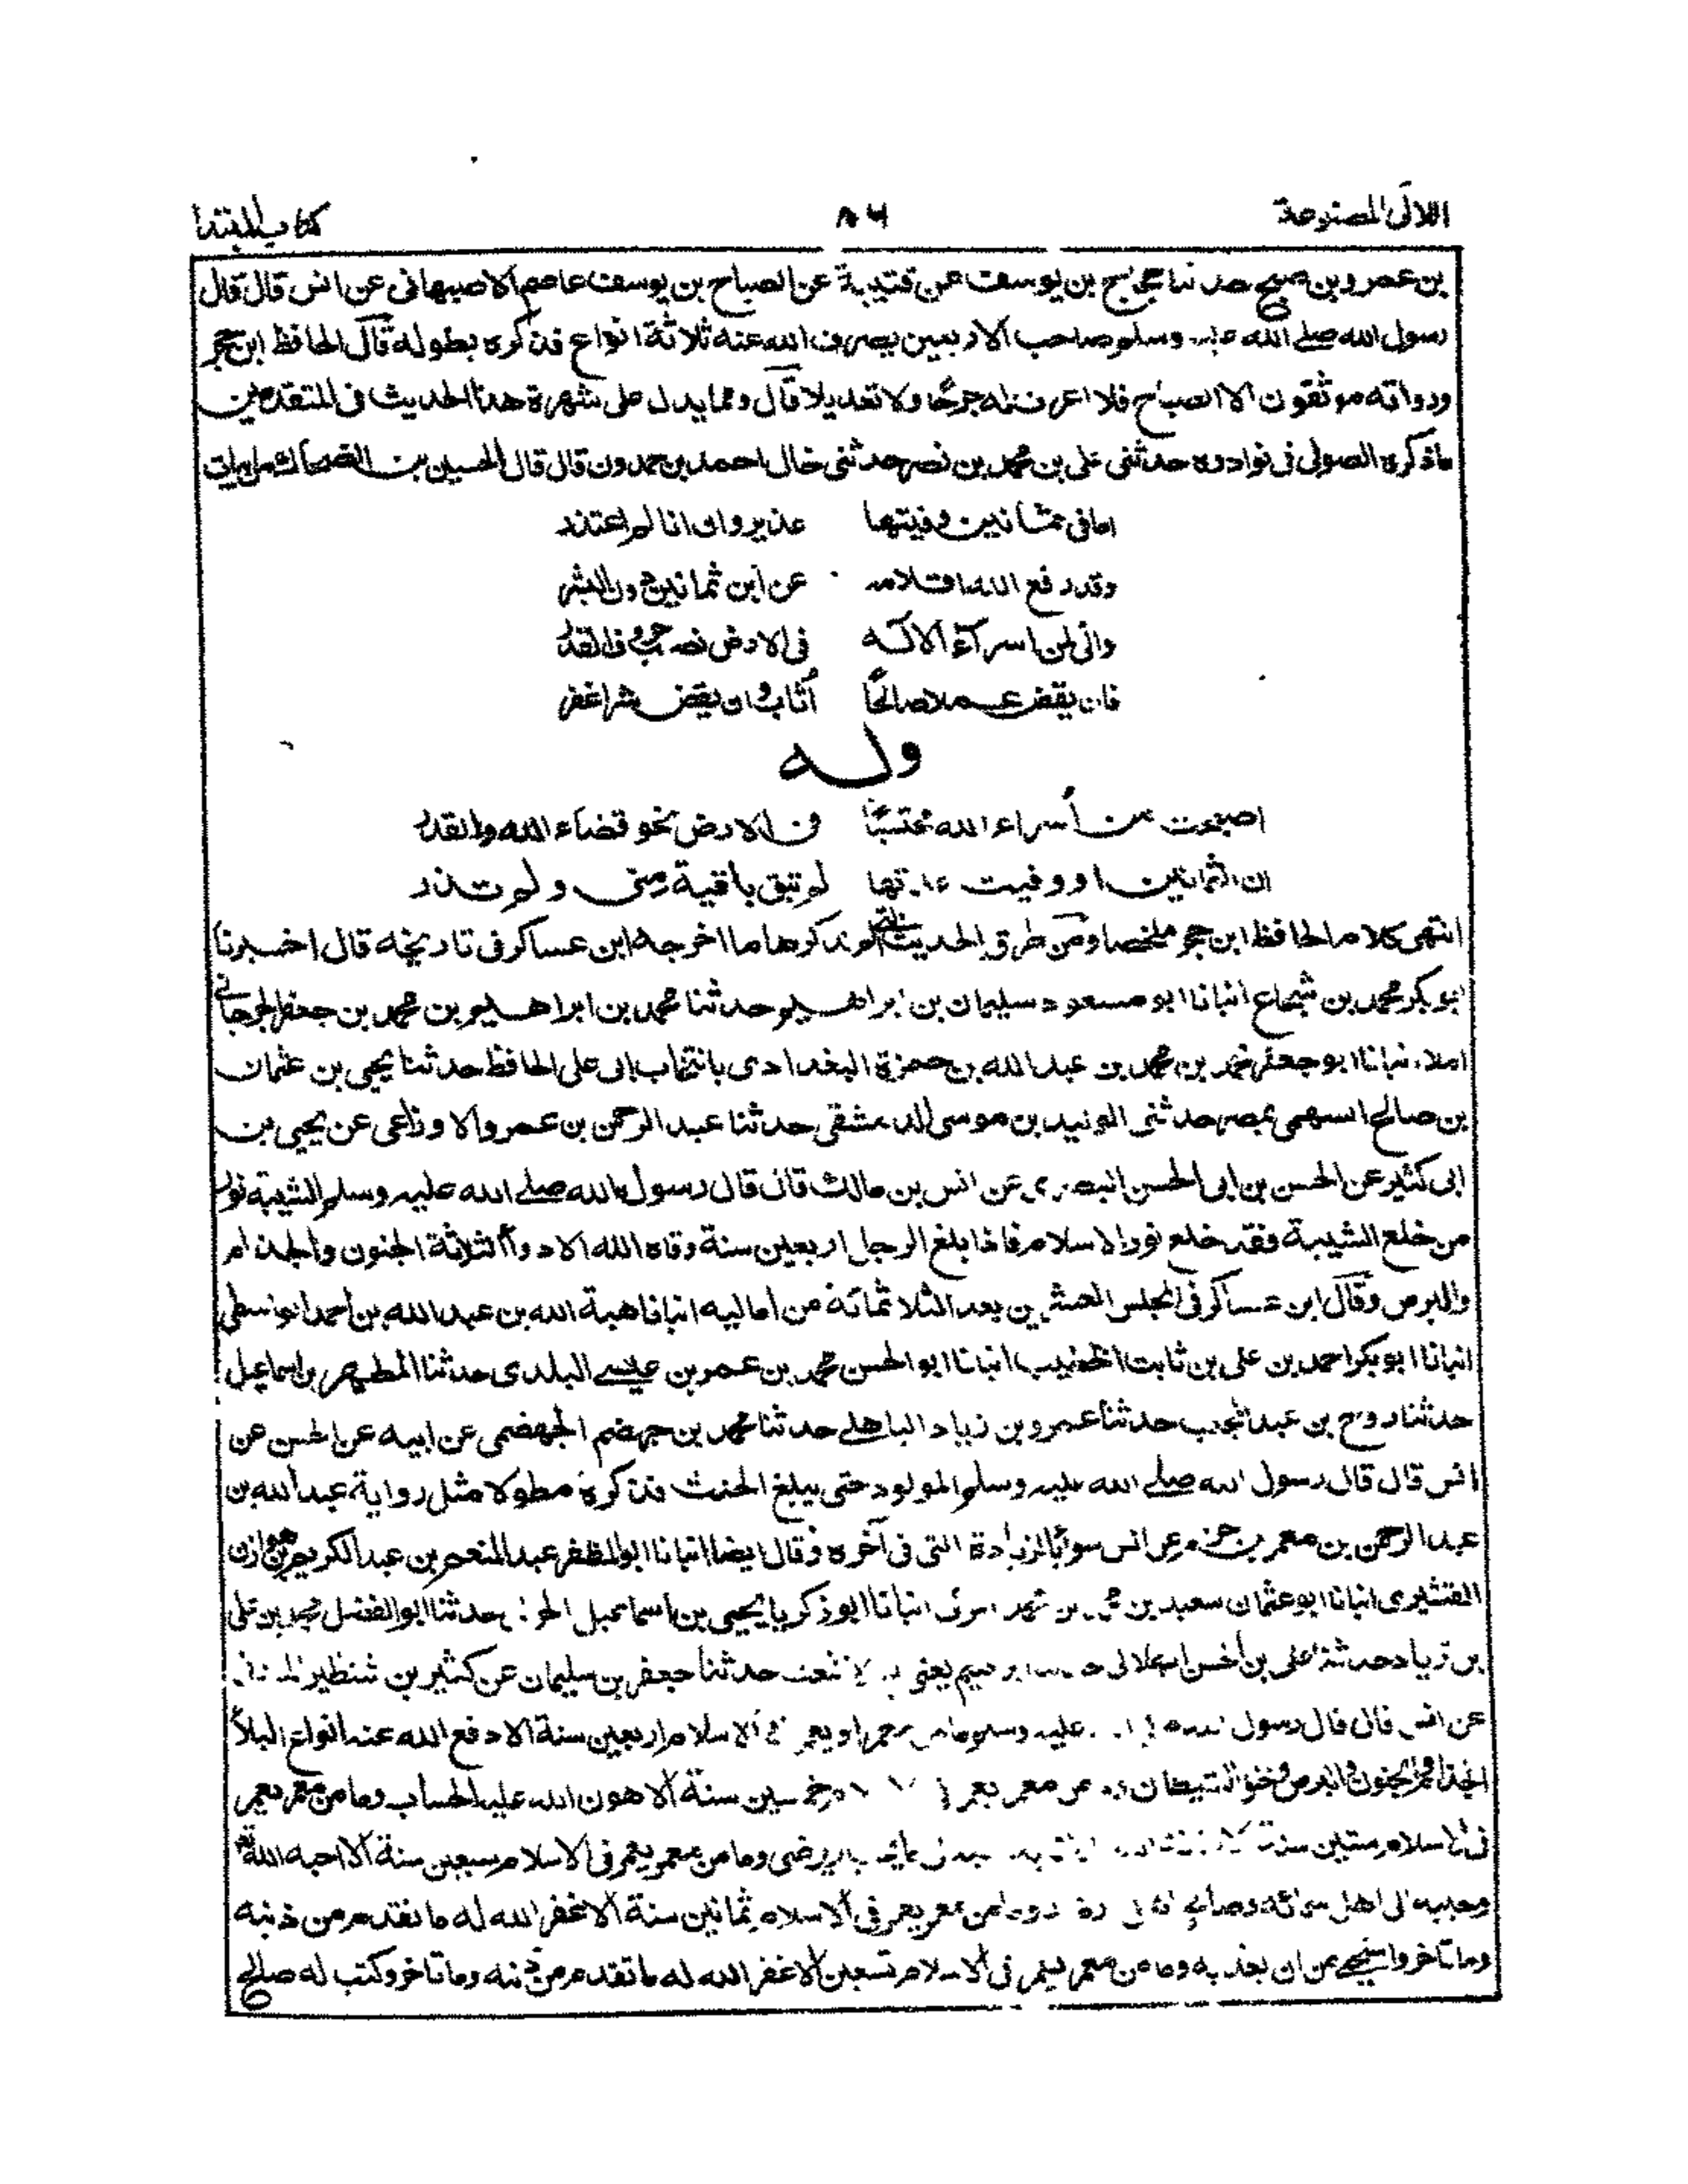 اللآلی المصنوعة
٨٦
كتاب المبتدا
بن عمرو بن صبیح حدثنا حجاج بن یوسف عن قتیبة عن الصباح بن یوسف عاصم الاصبهانی عن انس قال قال
رسول الله صلے الله علیه وسلم صاحب الاربعین یصرف الله عنه ثلاثة انواع فذكره بطوله قال الحافظ ابن حجر
ورواته موثقون الا الصباح فلا اعرف فیه جرحًا ولا تعدیلا قال ومما یدل علی شهرة هذا الحدیث فی المتقدمین
ماذكره الصولی فی نوادره حدثنی علی بن محمد بن نصر حدثنی خالی احمد بن حمدون قال قال الحسین بن الضحاك
اما فی ثمانین وفیتها عذیر وان انا لم اعتذر
وقد رفع الله اقلامه عن ابن ثمانین دون البشر
وانی لمن اسرآء الاله فی الارض نصب صروف القدر
فان یقض عملا صالحًا أثاب وان یقض شرا غفر
وله
اصبحت من أسراء الله محتسبًا فی الارض نحو قضاء الله والقدر
ان الثمانین اذ وفیت عدتها لم تبق باقیة منی ولم تذر
انتهی كلام الحافظ ابن حجر ملخصا ومن طرق الحدیث التی لم یذكرها ما اخرجه ابن عساكر فی تاریخه قال اخبرنا
ابو بكر محمد بن شجاع انبانا ابو مسعود سلیمان بن ابراهیم حدثنا محمد بن ابراهیم بن محمد بن جعفر الجرجانی
املاء انبانا ابو جعفر محمد بن محمد بن عبد الله بن حمزة البغدادی بانتخاب ابی علی الحافظ حدثنا یحیی بن عثمان
بن صالح السهمی بمصر حدثنی الولید بن موسی الدمشقی حدثنا عبد الرحمن بن عمرو الاوزاعی عن یحیی بن
ابی كثیر عن الحسن بن ابی الحسن البصری عن انس بن مالك قال قال رسول الله صلے الله علیه وسلم الشیبة نور
من خلع الشیبة فقد خلع نور الاسلام فاذا بلغ الرجل اربعین سنة وقاه الله الادوآء الثلاثة الجنون والجذام
والبرص وقال ابن عساكر فی المجلس العشرین بعد الثلاثمائة من امالیه انبانا هبة الله بن عبد الله بن احمد الواسطی
انبانا ابو بكر احمد بن علی بن ثابت الخطیب انبانا ابو الحسن محمد بن عمر بن عیسے البلدی حدثنا المطهر بن اسماعیل
حدثنا روح بن عبد المجیب حدثنا عمرو بن زیاد الباهلے حدثنا محمد بن جهضم الجهضمی عن ابیه عن الحسن عن
انس قال قال رسول الله صلے الله علیه وسلم المولود حتی یبلغ الحنث فذكره مطولا مثل روایة عبد الله بن
عبد الرحمن بن معمر بن حزم عن انس سوآء بالزیادة التی فی آخره وقال ایضا انبانا ابو المظفر عبد المنعم بن عبد الكریم بن هوازن
القشیری انبانا ابو عثمان سعید بن انبانا ابو زكریا یحیی بن اسماعیل حدثنا ابو الفضل محمد بن علی
بن زیاد حدثنا علی بن الحسن الهلالی یعنی حدثنا جعفر بن سلیمان عن كثیر بن شنظیر
عن انس قال قال رسول علیه وسلم ما من معمر یعمر فی الاسلام اربعین سنة الا دفع الله عنه انواع البلآء
الجذام والجنون والبرص وخنق الشیطان وما من معمر یعمر خمسین سنة الا هون الله علیه الحساب وما من معمر یعمر
فی الاسلام ستین سنة یرضی وما من معمر یعمر فی الاسلام سبعین سنة الا احبه الله
وحببه الی اهل سمائه وصالحی وما من معمر یعمر فی الاسلام ثمانین سنة الا غفر الله له ما تقدم من ذنبه
وما تاخر واستحیی من ان یعذبه وما من معمر یعمر فی الاسلام تسعین الا غفر الله له ما تقدم من ذنبه وما تاخر وكتب له صالح